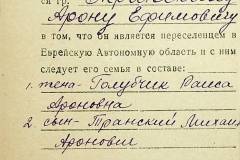 Арону Ефимовичу
в том, что он является переселенцем в
Еврейскую Автономную область и с ним
следует его семья в составе:
1. жена - Голубчик Раиса
Ароновна
2. сын - Транский Михаил
Аронович